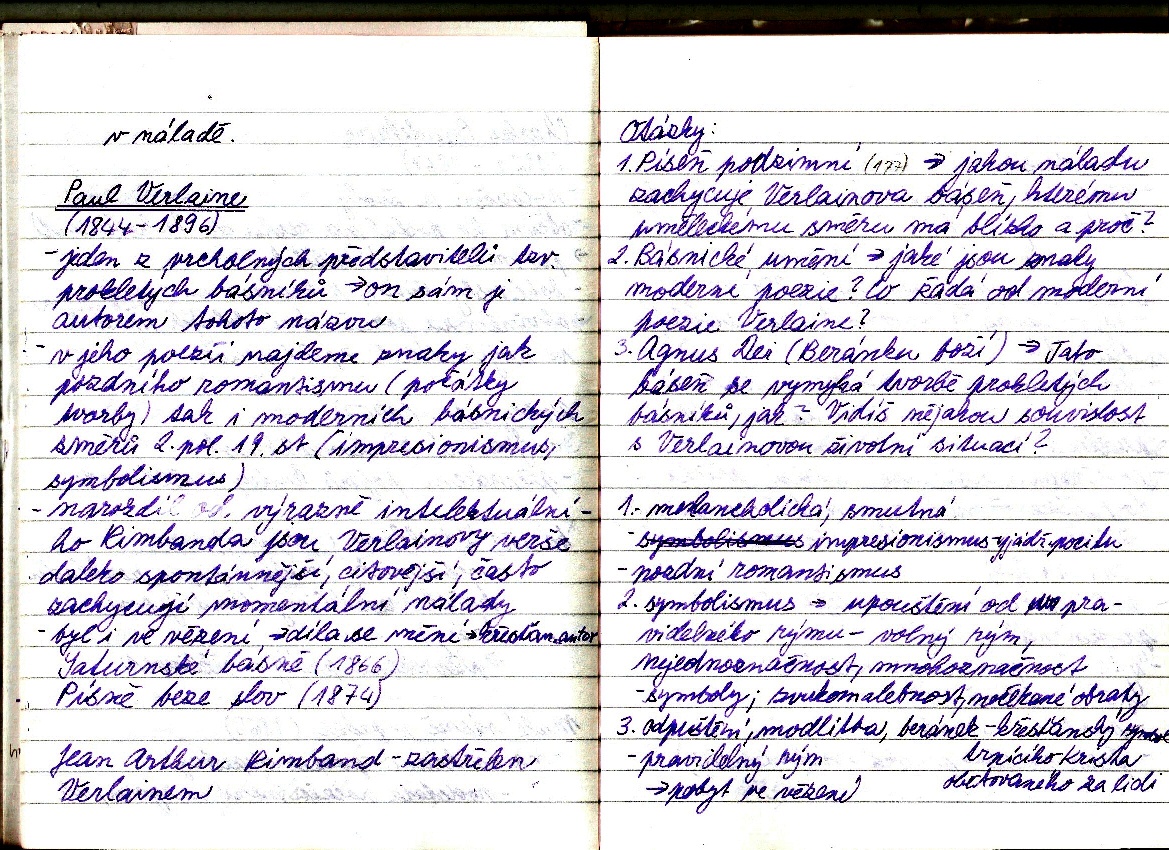 v náladě.
Paul Verlaine
(1844-1896)
- jeden z vrcholných představitelů tzv.
prokletých básníků → on sám je
autorem tohoto názvu
- v jeho poezii najdeme znaky jak
pozdního romantismu (počátky
tvorby) tak i moderních básnických
směrů 2. pol. 19. st (impresionismus,
symbolismus)
- narozdíl od výrazně intelektuální-
ho Rimbauda jsou Verlainovy verše
daleko spontánnější, citovější, často
zachycují momentální nálady
- byl i ve vězení → díla se mění → křesťan. autor
Saturnské básně (1866)
Písně beze slov (1874)
Jean Arthur Rimbaud - zastřelen
Verlainem
Otázky:
1. Píseň podzimní (177) → jakou náladu
zachycuje Verlainova báseň, kterému
uměleckému směru má blízko a proč?
2. Básnické umění → jaké jsou znaky
moderní poezie? Co žádá od moderní
poezie Verlaine?
3. Agnus Dei (Beránku boží) → Tato
báseň se vymyká tvorbě prokletých
básníků, jak? Vidíš nějakou souvislost
s Verlainovou životní situací?
1. - melancholická, smutná
- symbolismus impresionismus - vyjádř. pocitu
- pozdní romantismus
2. symbolismus → upouštění od pra-
videlného rýmu - volný rým,
nejednoznačnost, mnohoznačnost
- symboly; zvukomalebnost, nečekané obraty
3. odpuštění, modlitba, beránek - křesťanský symbol
- pravidelný rým trpícího Krista
→ pobyt ve vězení obětovaného za lidi